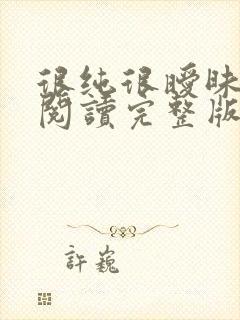 很純很曖昧
閱讀完整版
許巍